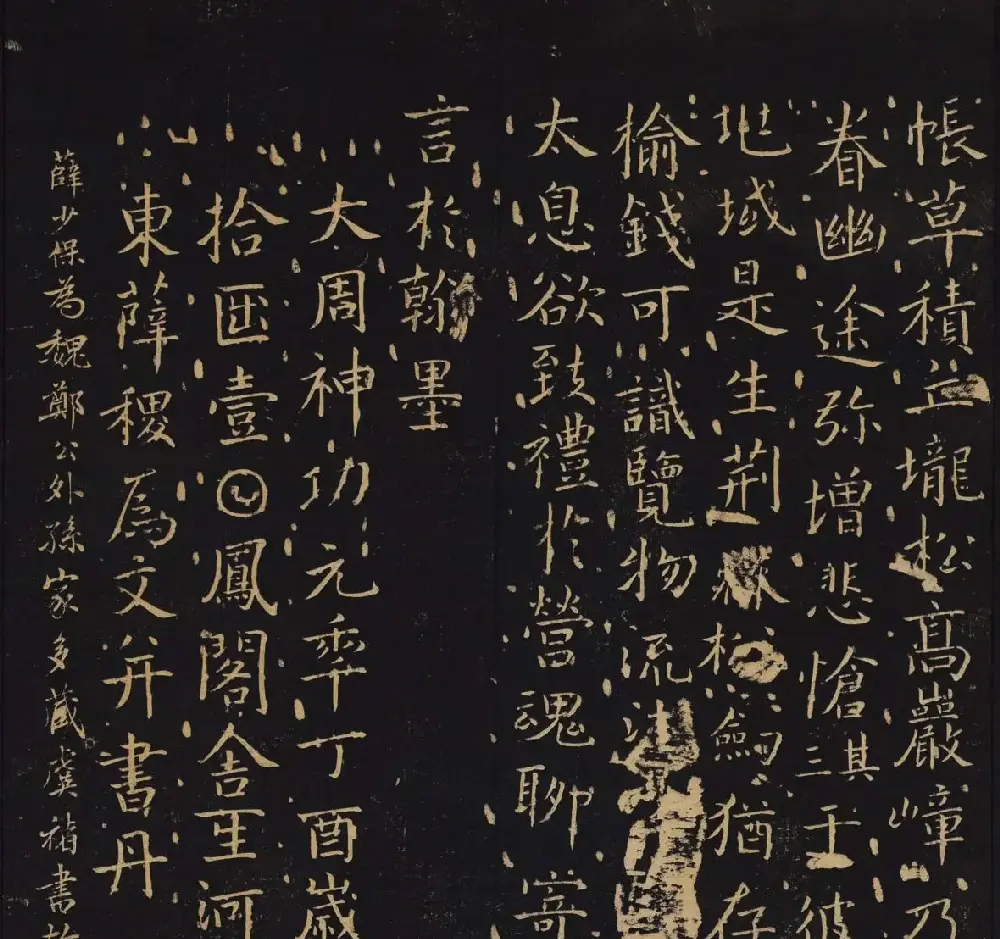 帳草積丘壠松高巖嶂乃
眷幽途弥增悲愴其三彼
地域是生荆猶存
榆錢可識覽物流
太息欲致禮於營魂聊寄
言於翰墨
大周神功元秊丁酉歲
拾囸壹𡆠鳳閣舍𤯔河
東薛稷爲文并書丹
薛少保為魏鄭公外孫家多藏虞褚書故